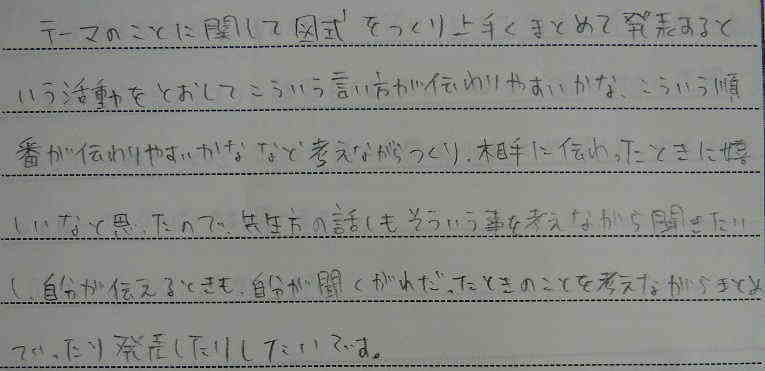 テーマのことに関して図式をつくり上手くまとめて発表すると
いう活動をとおしてこういう言い方が伝わりやすいかな、こういう順
番が伝わりやすいかななど考えながらつくり、相手に伝わったときに嬉
しいなと思ったので、先生方の話しもそういう事を考えながら聞きたい
し、自分が伝えるときも、自分が聞くがわだったときのことを考えながらまとめ
ていったり発表したりしたいです。